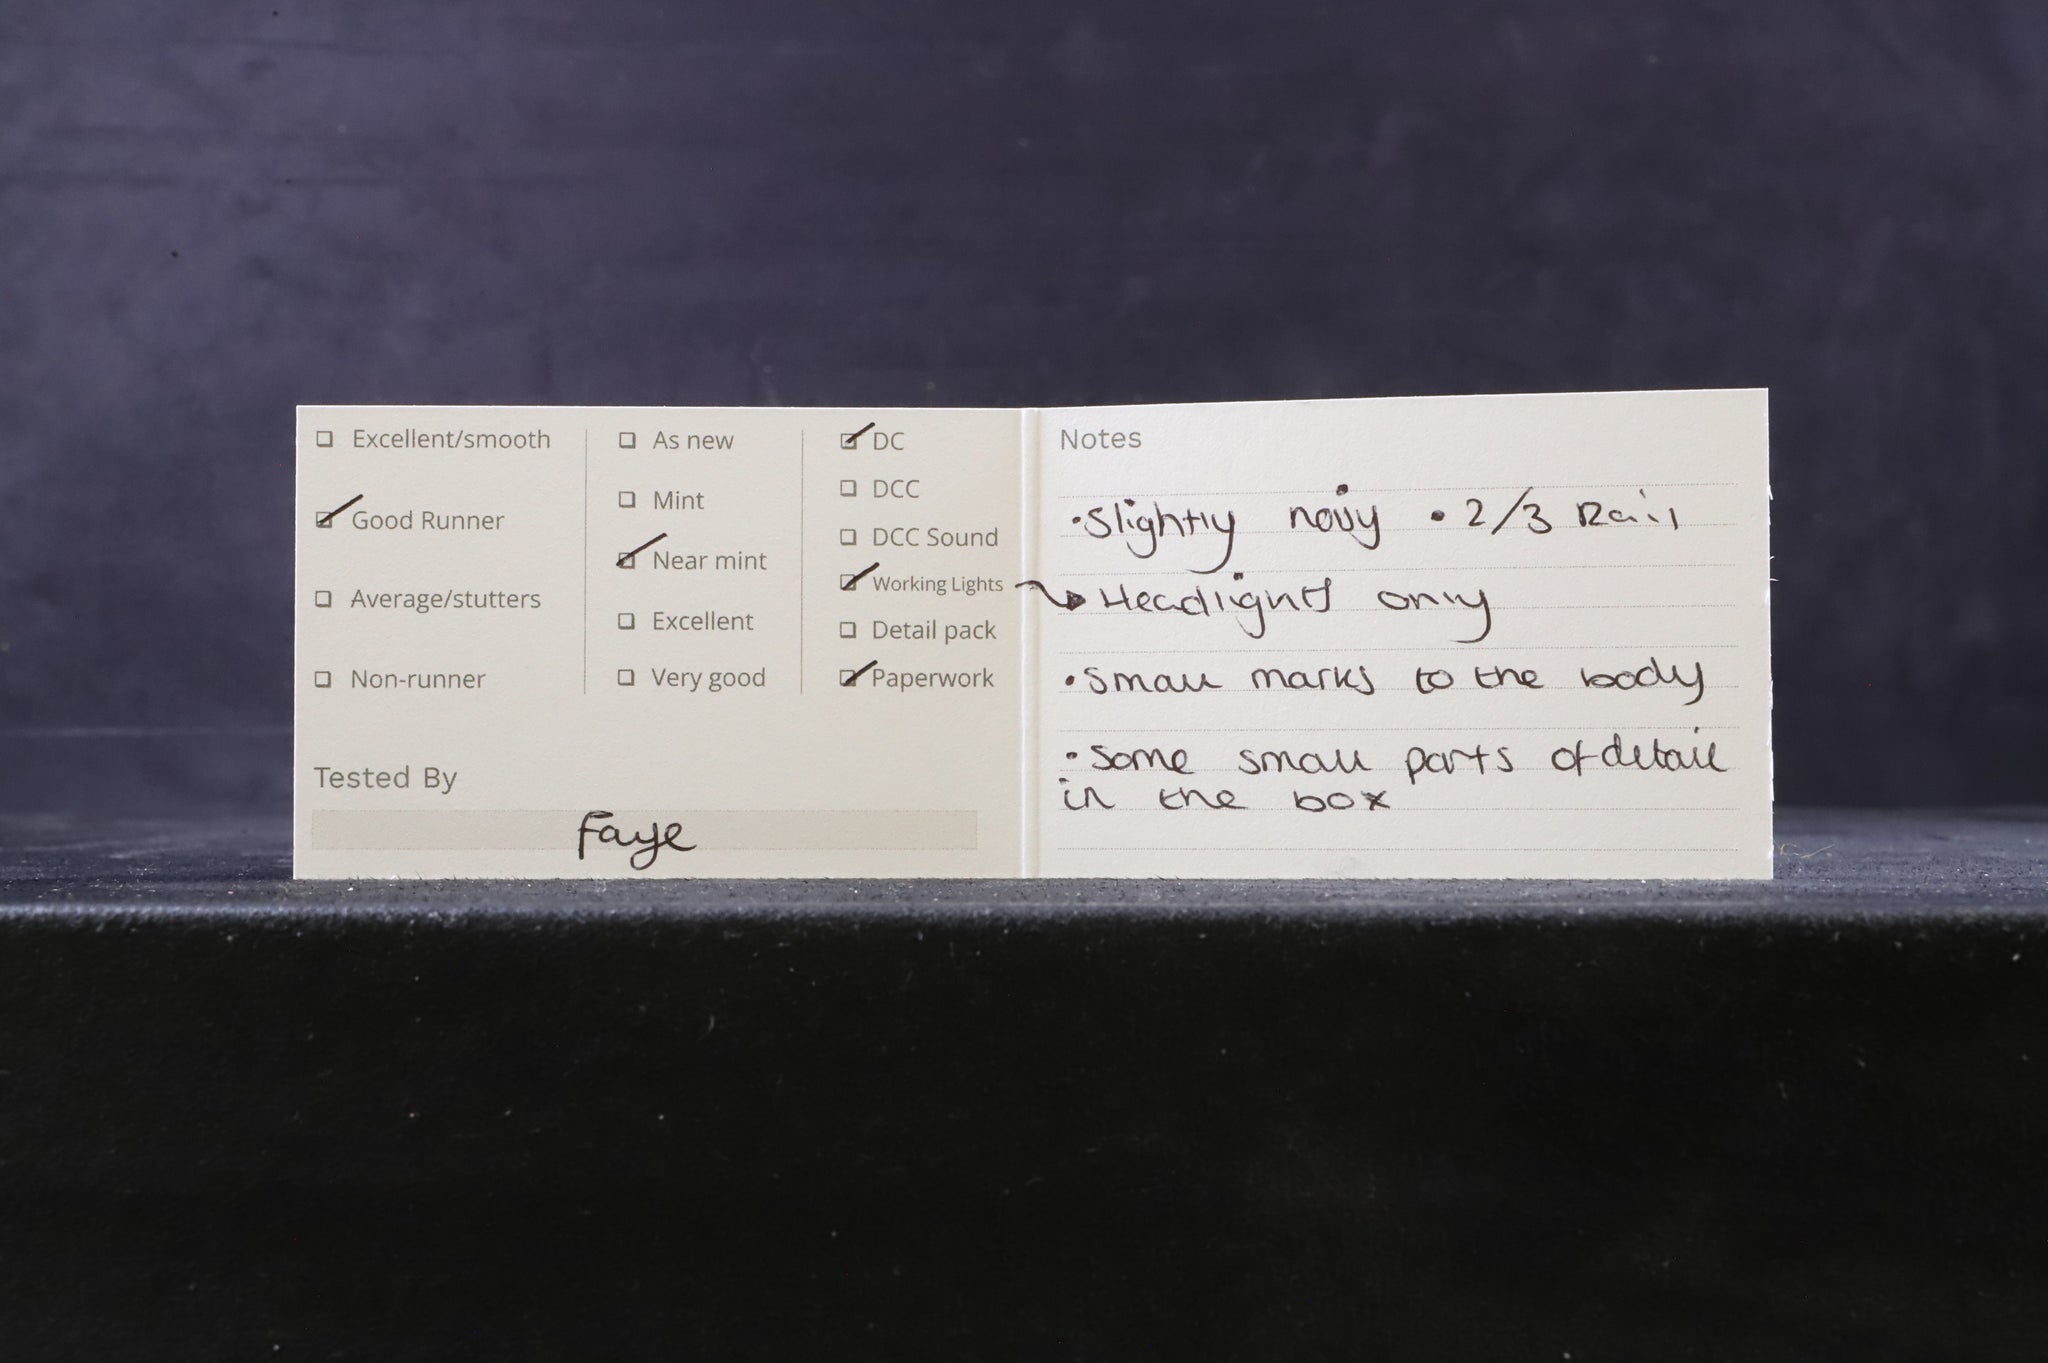 Excellent/smooth
Good Runner
Average/stutters
Non-runner
As new
Mint
Near mint
Excellent
Very good
DC
DCC
DCC Sound
Working Lights
Detail pack
Paperwork
Tested By
Faye
Notes
• Slightly noisy • 2/3 Rail
Headlights only
• Small marks to the body
• Some small parts of detail
in the box